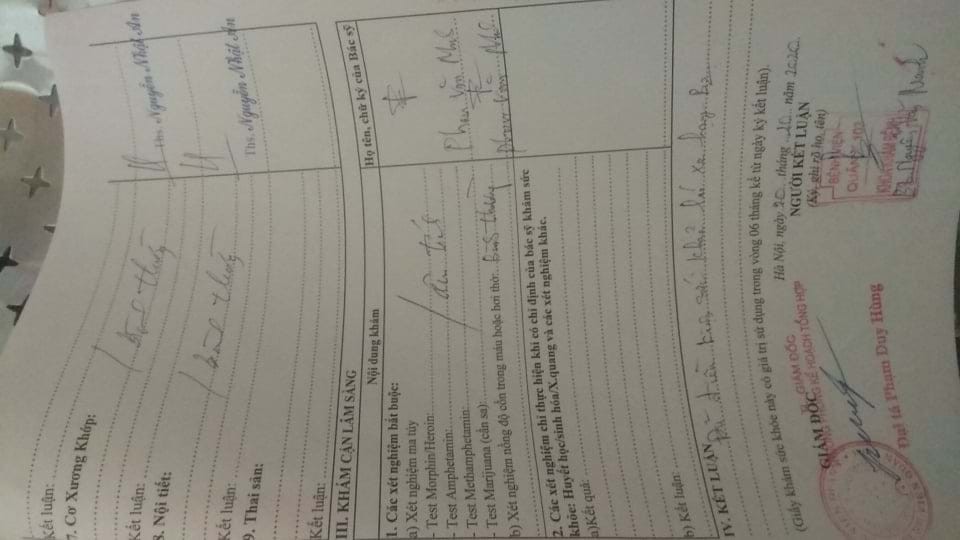 Kết luận:
7. Cơ Xương Khớp:
bình thường
Kết luận:
Ths. Nguyễn Nhật An
8. Nội tiết:
bình thường
Kết luận:
Ths. Nguyễn Nhật An
9. Thai sản:
Kết luận:
III. KHÁM CẬN LÂM SÀNG
Nội dung khám
Họ tên, chữ ký của Bác sỹ
1. Các xét nghiệm bắt buộc:
a) Xét nghiệm ma túy
- Test Morphin/Heroin:
- Test Amphetamin:
- Test Methamphetamin:
- Test Marijuana (cần sa):
âm tính
b) Xét nghiệm nồng độ cồn trong máu hoặc hơi thở: bình thường
2. Các xét nghiệm chỉ thực hiện khi có chỉ định của bác sỹ khám sức
khỏe: Huyết học/sinh hóa/X.quang và các xét nghiệm khác.
a) Kết quả:
b) Kết luận:
IV. KẾT LUẬN Đủ điều kiện sức khỏe lái xe hạng B2
(Giấy khám sức khỏe này có giá trị sử dụng trong vòng 06 tháng kể từ ngày ký kết luận).
Hà Nội, ngày 20 tháng năm 2020
GIÁM ĐỐC
NGƯỜI KẾT LUẬN
(Ký, ghi rõ họ, tên)
GIÁM ĐỐC
PHÒNG KẾ HOẠCH TỔNG HỢP
BỆNH VIỆN
QUÂN Y
Đại tá Phạm Duy Hùng